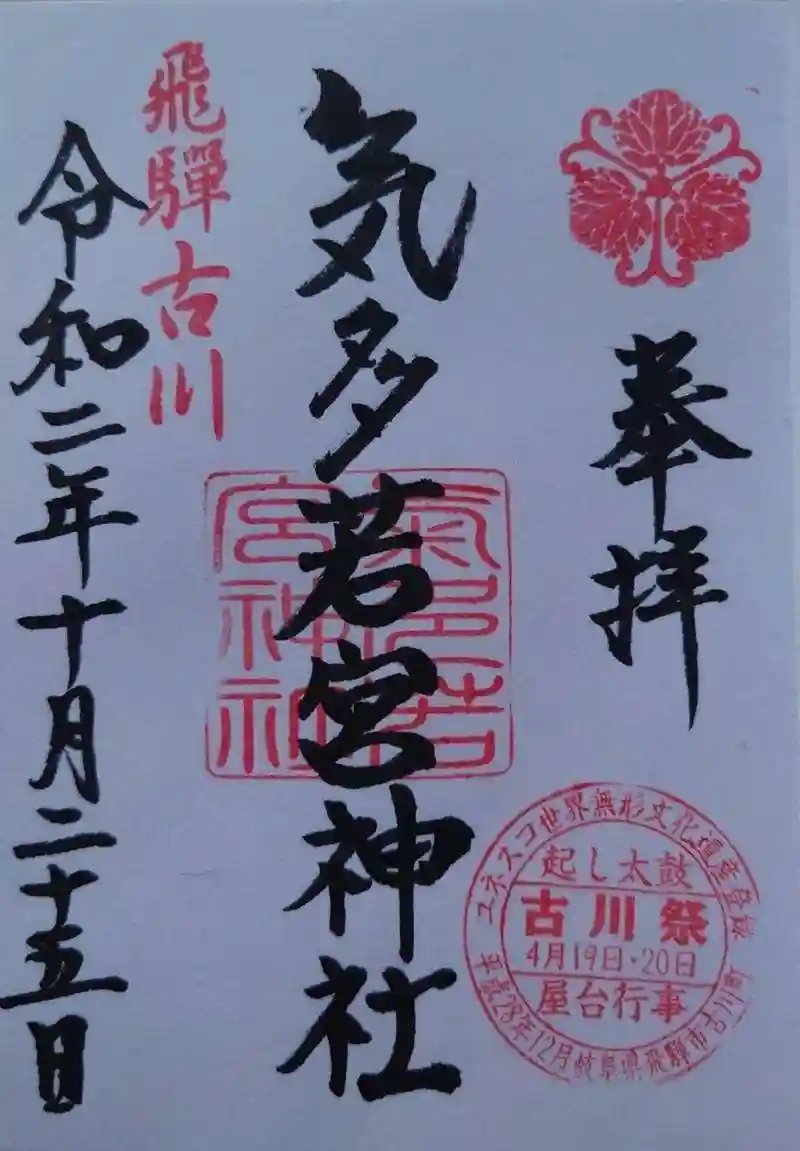 奉拝
気多若宮神社
氣多若
宮神
社印
飛騨古川
令和二年十月二十五日
ユネスコ世界無形文化遺産登録
起し太鼓
古川祭
4月19日・20日
屋台行事
28年12月岐阜県飛騨市古川町